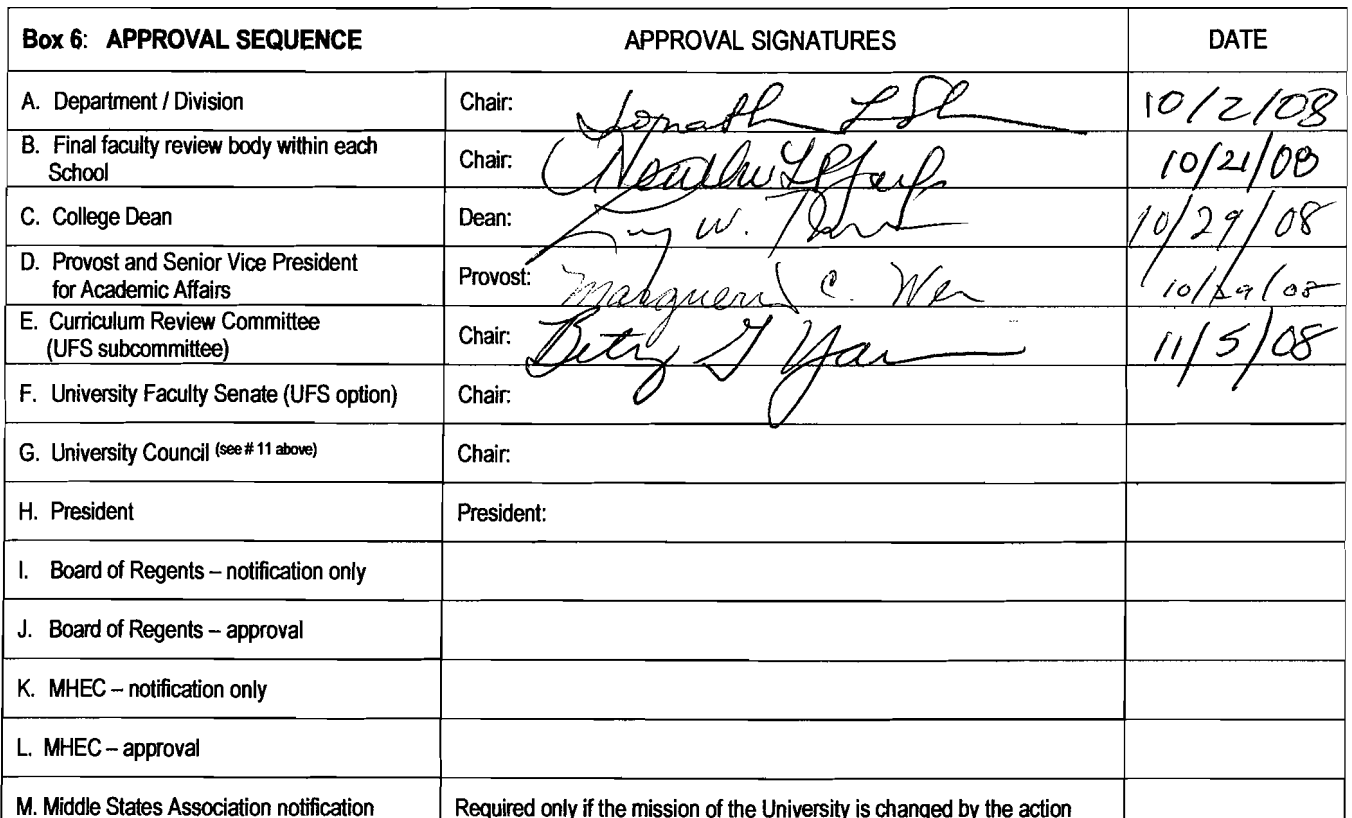 Box 6: APPROVAL SEQUENCE APPROVAL SIGNATURES DATE
A. Department / Division Chair: 10/2/08
B. Final faculty review body within each
School Chair: 10/21/08
C. College Dean Dean: W. 10/29/08
D. Provost and Senior Vice President
for Academic Affairs Provost: C. 10/29/08
E. Curriculum Review Committee
(UFS subcommittee) Chair: Betsy 11/5/08
F. University Faculty Senate (UFS option) Chair:
G. University Council (see # 11 above) Chair:
H. President President:
I. Board of Regents – notification only
J. Board of Regents – approval
K. MHEC – notification only
L. MHEC – approval
M. Middle States Association notification Required only if the mission of the University is changed by the action